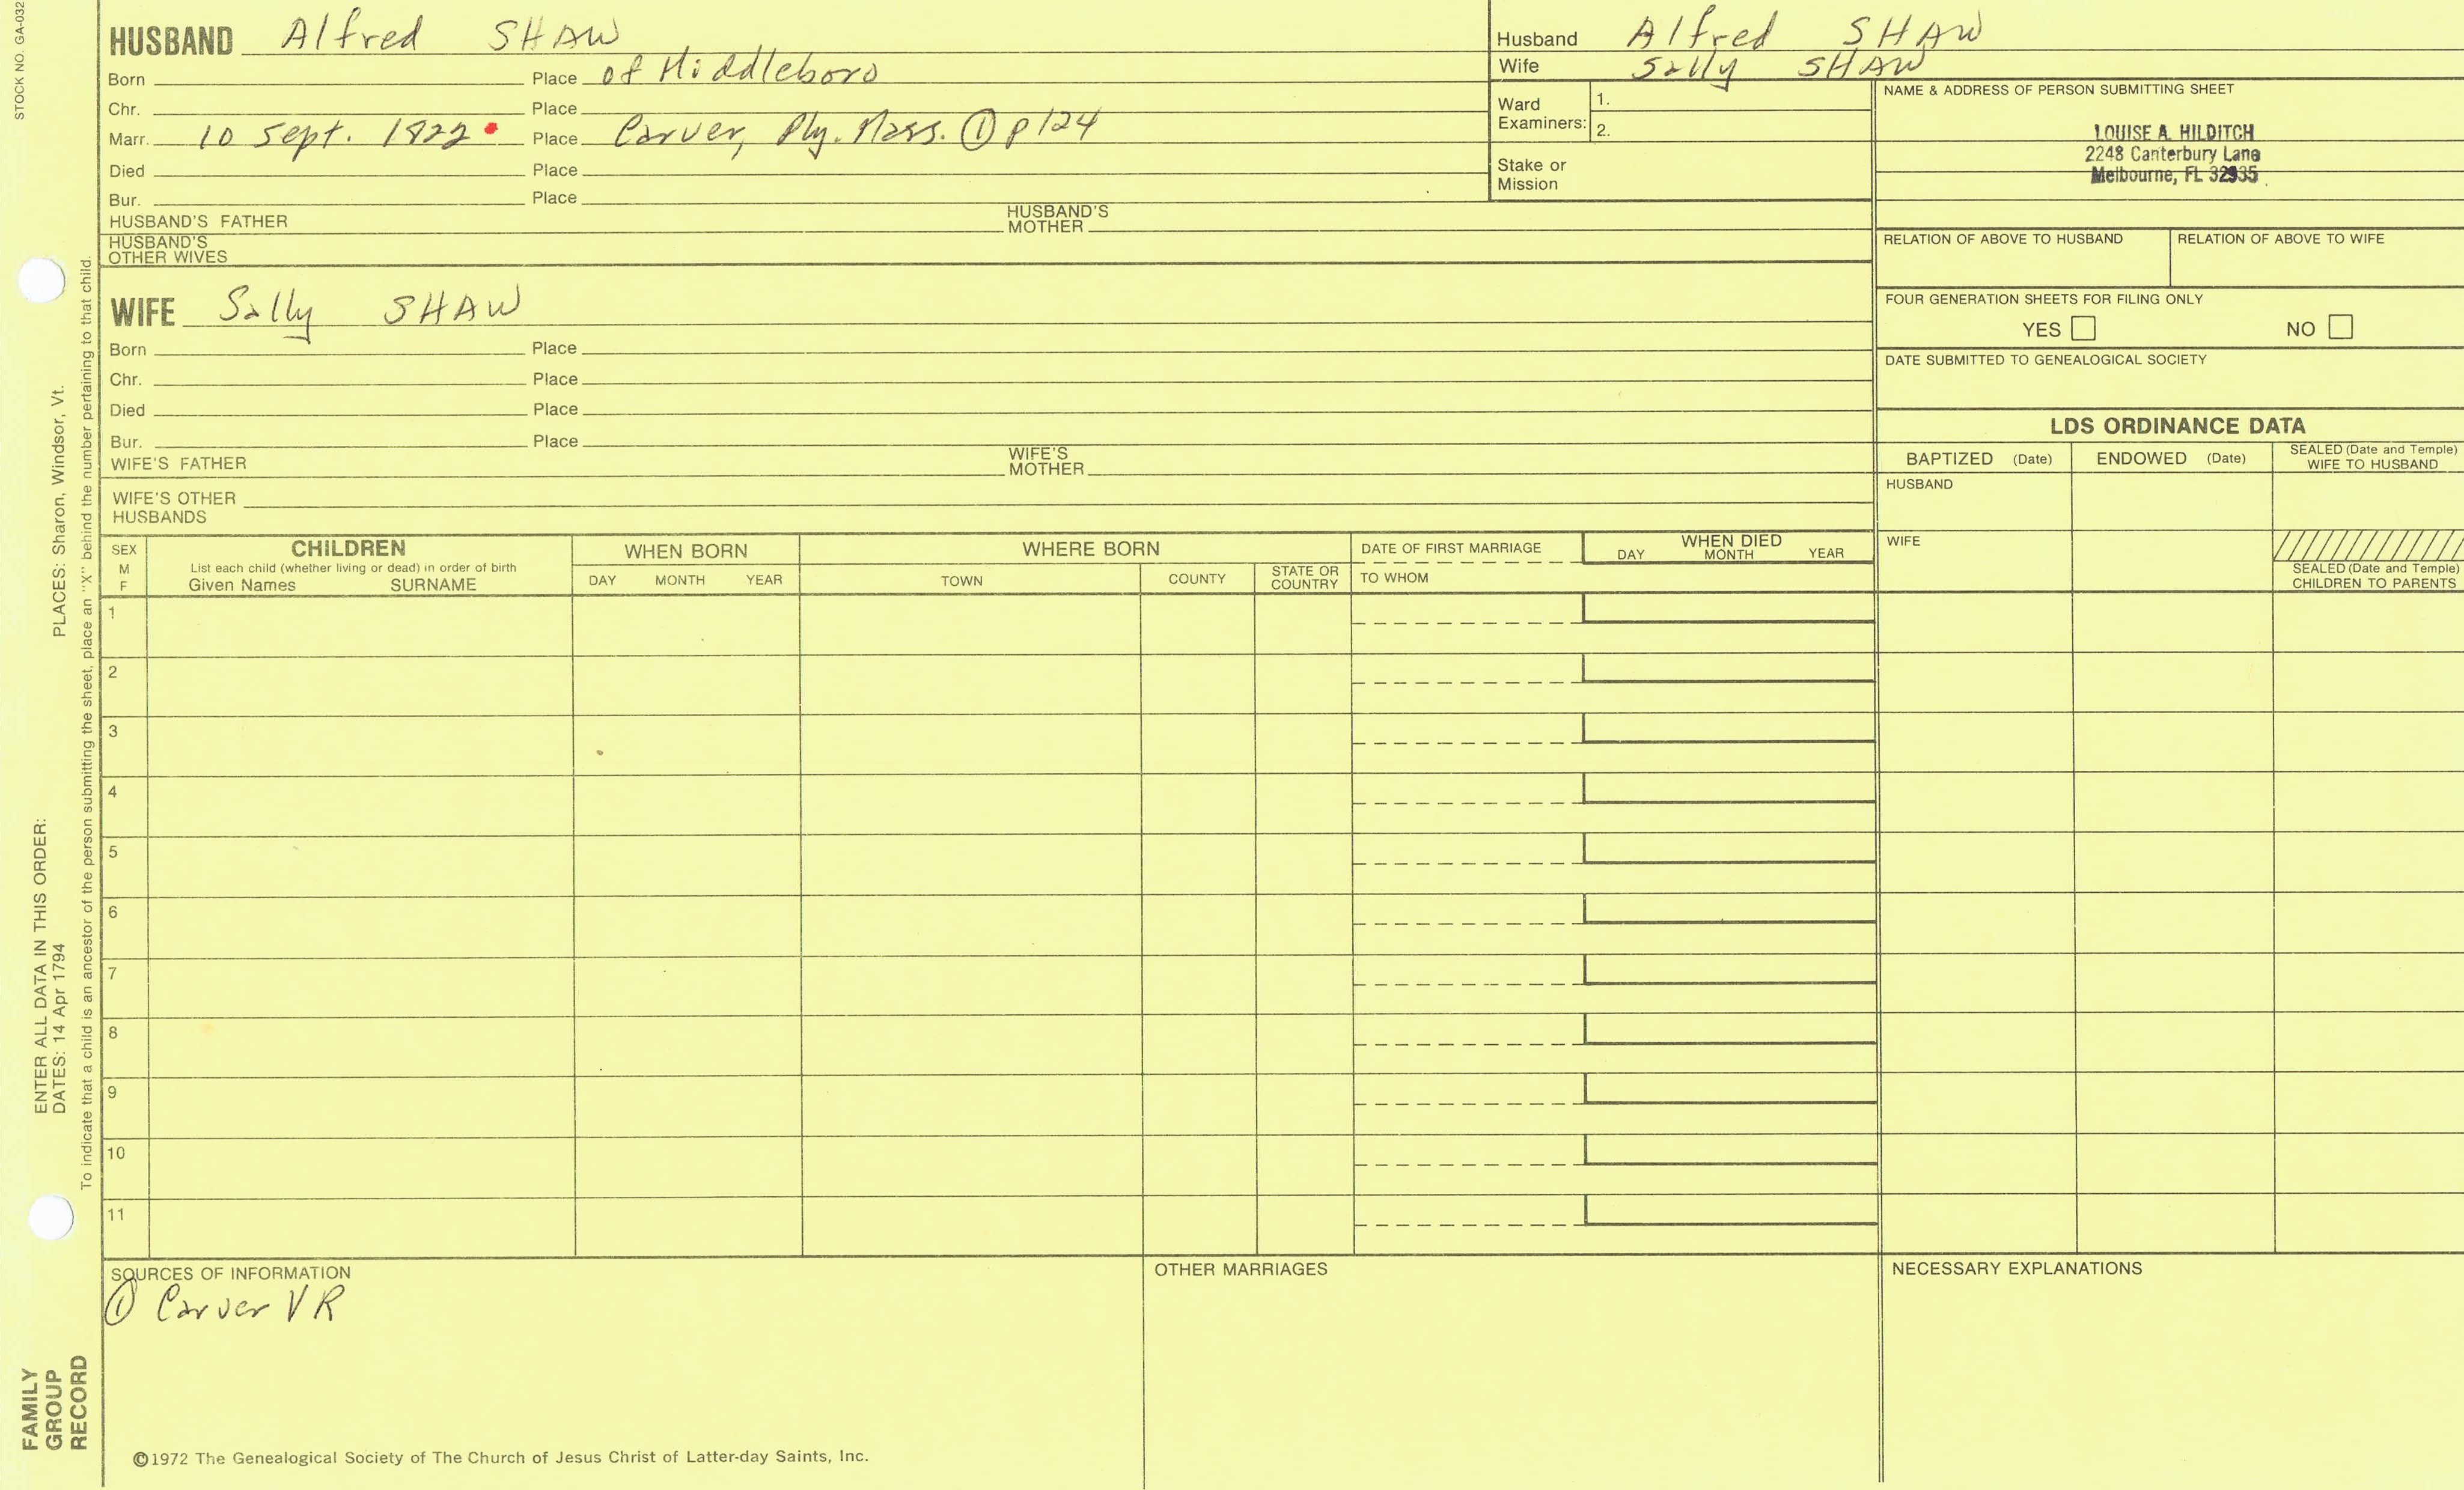 STOCK NO. GA-032
HUSBAND Alfred SHAW
Born Place of Middleboro
Chr. Place
Marr. 10 Sept. 1822 Place Carver, Ply. Mass. ① p124
Died Place
Bur. Place
HUSBAND'S FATHER HUSBAND'S MOTHER
HUSBAND'S
OTHER WIVES
Husband Alfred SHAW
Wife Sally SHAW
Ward
Examiners: 1.
2.
Stake or
Mission
NAME & ADDRESS OF PERSON SUBMITTING SHEET
LOUISE A. HILDITCH
2248 Canterbury Lane
Melbourne, FL 32935
RELATION OF ABOVE TO HUSBAND RELATION OF ABOVE TO WIFE
FOUR GENERATION SHEETS FOR FILING ONLY
YES NO
DATE SUBMITTED TO GENEALOGICAL SOCIETY
WIFE Sally SHAW
Born Place
Chr. Place
Died Place
Bur. Place
WIFE'S FATHER WIFE'S MOTHER
WIFE'S OTHER
HUSBANDS
LDS ORDINANCE DATA
BAPTIZED (Date) ENDOWED (Date) SEALED (Date and Temple)
WIFE TO HUSBAND
HUSBAND
WIFE
SEALED (Date and Temple)
CHILDREN TO PARENTS
SEX
M
F
CHILDREN
List each child (whether living or dead) in order of birth
Given Names SURNAME
WHEN BORN
DAY MONTH YEAR
WHERE BORN
TOWN COUNTY STATE OR
COUNTRY
DATE OF FIRST MARRIAGE
TO WHOM
WHEN DIED
DAY MONTH YEAR
1
2
3
4
5
6
7
8
9
10
11
SOURCES OF INFORMATION
① Carver VR
OTHER MARRIAGES
NECESSARY EXPLANATIONS
©1972 The Genealogical Society of The Church of Jesus Christ of Latter-day Saints, Inc.
ENTER ALL DATA IN THIS ORDER:
DATES: 14 Apr 1794
PLACES: Sharon, Windsor, Vt.
To indicate that a child is an ancestor of the person submitting the sheet, place an "X" behind the number pertaining to that child.
FAMILY
GROUP
RECORD